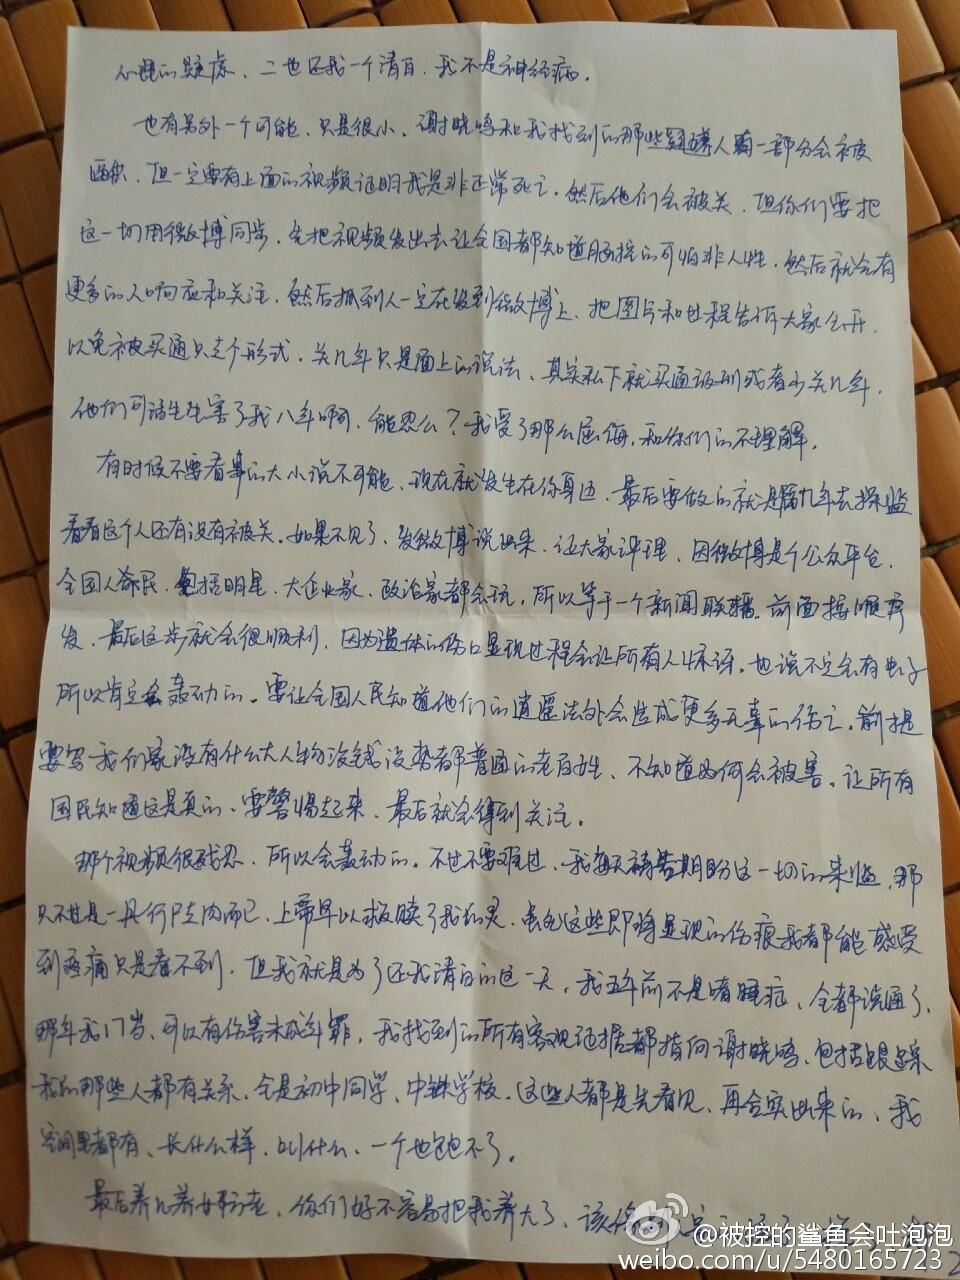 心理的疑虑、二也还我一个清白、我不是神经病。
也有另外一个可能、只是很小、谢晓鸣和我找到的那些嫌疑人有一部分会被
但一定要有上面的视频证明我是非正常死亡、然后他们会被关、但你们要把
这一切用微博同步、先把视频发出去让全国都知道脑控的可怕非人性、然后就会有
更多的人响应和关注、然后抓到人一定在发到微博上、把图片和过程告诉大家公开、
以免被买通只走个形式、关几年只是面上的说法、其实私下就买通减刑或者少关几年、
他们可活生生害了我八年啊、能忍么？我受了那么屈侮、和你们的不理解。
有时候不要看事的大小说不可能、现在就发生在你身边、最后要做的就是隔几年去探监
看看这个人还有没有被关、如果不见了、发微博说出来、让大家评理、因微博是个公众平台、
全国人民、包括明星、大企业家、政治家都会玩、所以等于一个新闻联播、前面按顺序
发、最后这步就会很顺利、因为遗体的伤口显现过程会让所有人惊讶、也说不定会有虫子
所以肯定会轰动的。要让全国人民知道他们的逍遥法外会造成更多无辜的伤亡、前提
要写我们家没有什么大人物没钱没势都普通的老百姓、不知道为何会被害、让所有
国民知道这是真的、要警惕起来、最后就会得到关注。
那个视频很残忍、所以会轰动的。不过不要难过、我每天祷告期盼这一切的来临、那
只不过是一具行尸走肉而已、上帝早以救赎了我的灵、虽然这些即将显现的伤痕我都能感受
到疼痛只是看不到、但我就是为了还我清白的这一天、我五年前不是嗜睡症、全都说通了、
那年我17岁、可以有伤害未成年罪、我找到的所有客观证据都指向谢晓鸣、包括跟踪
我的那些人都有关系、全是初中同学、中铁学校。这些人都是先看见、再合实出来的、我
空间里都有、长什么样、叫什么、一个也跑不了。
最后养儿养女防老、你们好不容易把我养大了、该
@被控的鲨鱼会吐泡泡
weibo.com/u/5480165723
2